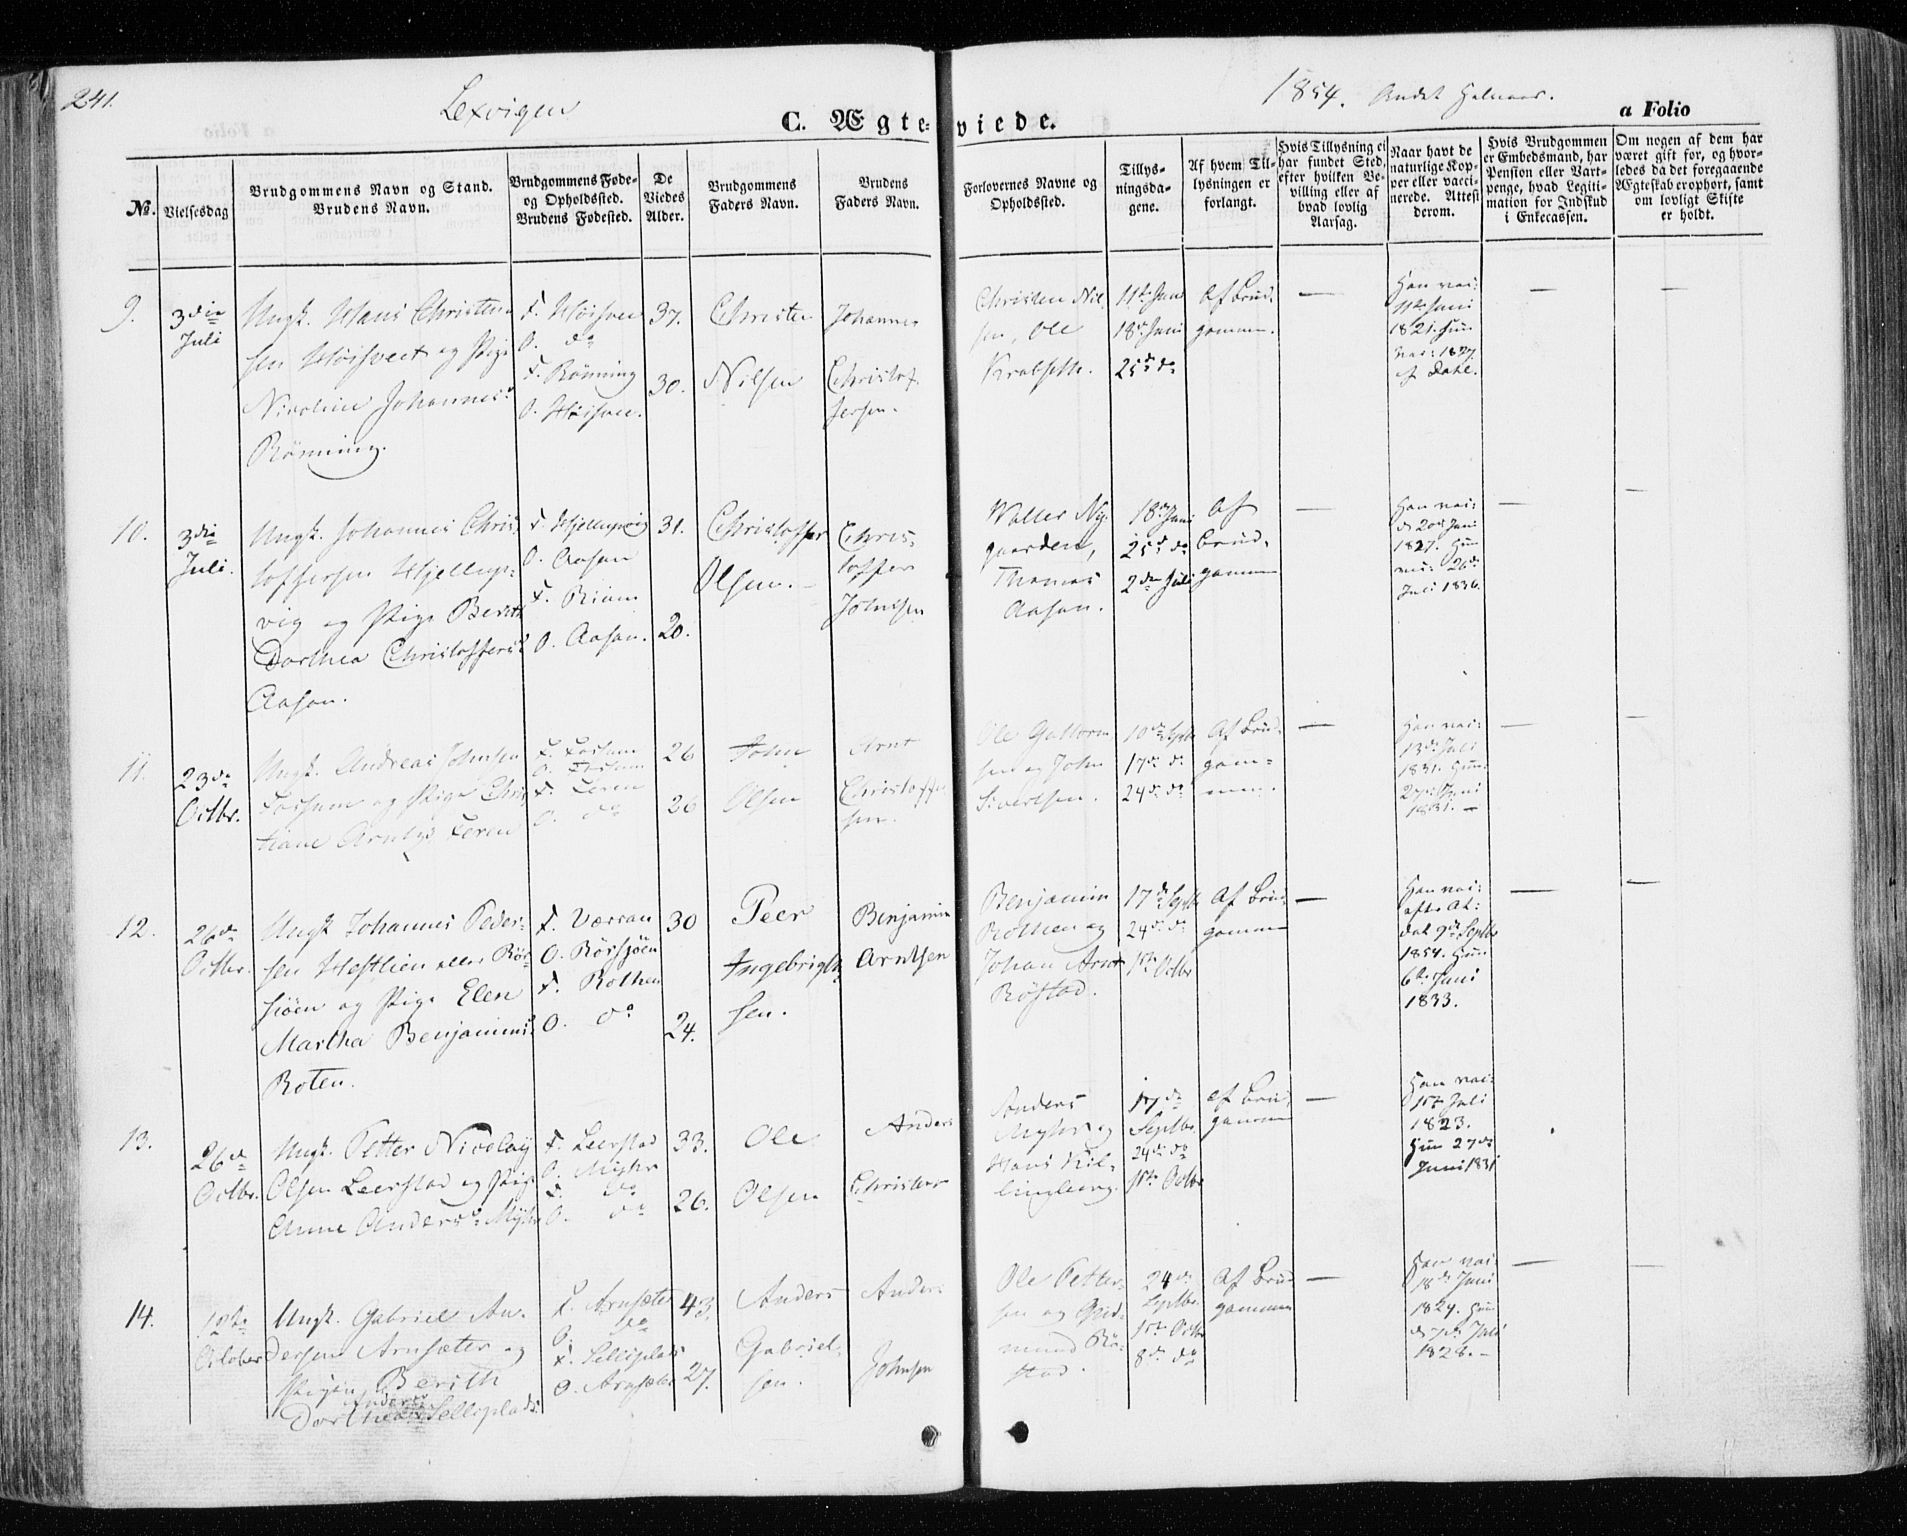 241.
Lexvigen
1854. Andet Halvaar.
C. Ægteviede.
a Folio
No.
Vielsesdag
Brudgommens Navn og Stand.
Brudens Navn.
Brudgommens Føde-
og Opholdssted.
Brudens Fødested.
De
Viedes
Alder.
Brudgommens
Faders Navn.
Brudens
Faders Navn.
Forlovernes Navne og
Opholdssted.
Tillys-
ningsda-
gene.
Af hvem Til-
lysningen er
forlangt.
Hvis Tillysning ei
har fundet Sted,
efter hvilken Be-
villing eller af
hvad lovlig
Aarsag.
Naar havt de
naturlige Kop-
per eller vacci-
nerede. Attest
derom.
Hvis Brudgommen
er Embedsmand, har
Pension eller Vart-
penge, hvad Legiti-
mation for Indskud
i Enkecassen.
Om nogen af dem har
været gift før, og hvor-
ledes da det foregaaende
Ægteskab erophørt, samt
om lovligt Skifte
er holdt.
9.
3die
Juli
Ungk. Hans Christen-
sen Høisveet og Pige
Nicoline Johannesd.
Rønning.
F. Høisvee
O. do
F. Rønning
O. Høisvee.
37.
30.
Christen
Nilsen
Johannes
Christof-
fersen.
Christen Nil-
sen, Ole
Krabsetti.
11te Juni
18de Juni
25de do
Af Brud-
gomm.
—
Han vac:
11te Juni
1821. Hun
vac: 1827.
af Dahl.
—
—
10.
3die
Juli.
Ungk. Johannes Chris-
toffersen Hjellup-
vig og Pige Berith
Dorthea Christoffersd.
Aasan.
F. Hjellupvig
O. Aasan
F. Rium
O. Aasan.
31.
20.
Christoffer
Olsen. —
Chris-
toffer
Johnsen
Walter Ny-
gaarden,
Thomas
Aasan.
18de Juni
25de do
2den Juli
Af
Brud-
gomm
—
Han vac:
d 20de Juni
1827. Hun
vac: 26de
Juli 1836.
—
—
11.
23de
Octbr.
Ungk. Andreas Johnsen
Fossum og Pige Chris
tiane Arntsd. Leren
F. Fossum
O. Fossum
F. Leren
O. do
26
26
John
Olsen
Arnt
Christoffer
sen.
Ole Guttorm
sen og John
Sivertsen.
10de Septb
17de do
24de do
Af Brud-
gom-
men.
—
Han vac:
13de Juli
1831. Hun:
27de Juni
1831. —
—
—
12.
26de
Octbr.
Ungk Johannes Peder-
sen Hestlien eller Rør-
siøen og Pige Elen
Martha Benjaminsd.
Roten.
F. Værran
O. Rørsjøen
F. Rothen
O. do
30
24.
Peer
Ingebrigt-
sen.
Benjamin
Arntsen
Benjamin
Rothen og
Johan Arnt
Røstad.
17de Septb
24de do
1ste Octbr
Af Brud
gomm
—
Han vac:
efter At-
test 9de Septbr
1854. Hun
6te Juni
1833.
—
—
13.
26de
Octbr.
Ungk. Petter Nicolay
Olsen Leerstad og Pige
Anne Andersd. Myhr
F. Leerstad
O. Myhr
F. do
O. do
33.
26.
Ole
Olsen
Anders
Christens
Anders
Myhr og
Hans Kil-
lingberg.
17de
Septbr.
24de do
1ste Octbr
Af Brud-
gomm
—
Han vac:
1ste Juli
1823.
Hun 27de
Juni 1831
14.
October
Ungk. Gabriel An-
dersen Arnsæter og
Pigen Berith
Anders
Dorthea Selliplads.
F. Arnsæter
O. do
F. Selliplads
O. Arnsæter
43.
27.
Anders
Gabriel-
sen.
Anders
Johnsen
Ole Petter-
sen og Gud-
mund Rø-
stad.
24de
Septbr.
1ste Octbr
8de do
Af Brud
gommen
—
Han vac:
18de Juni
1824. Hun
d 7de Juli
1828. —
—
—